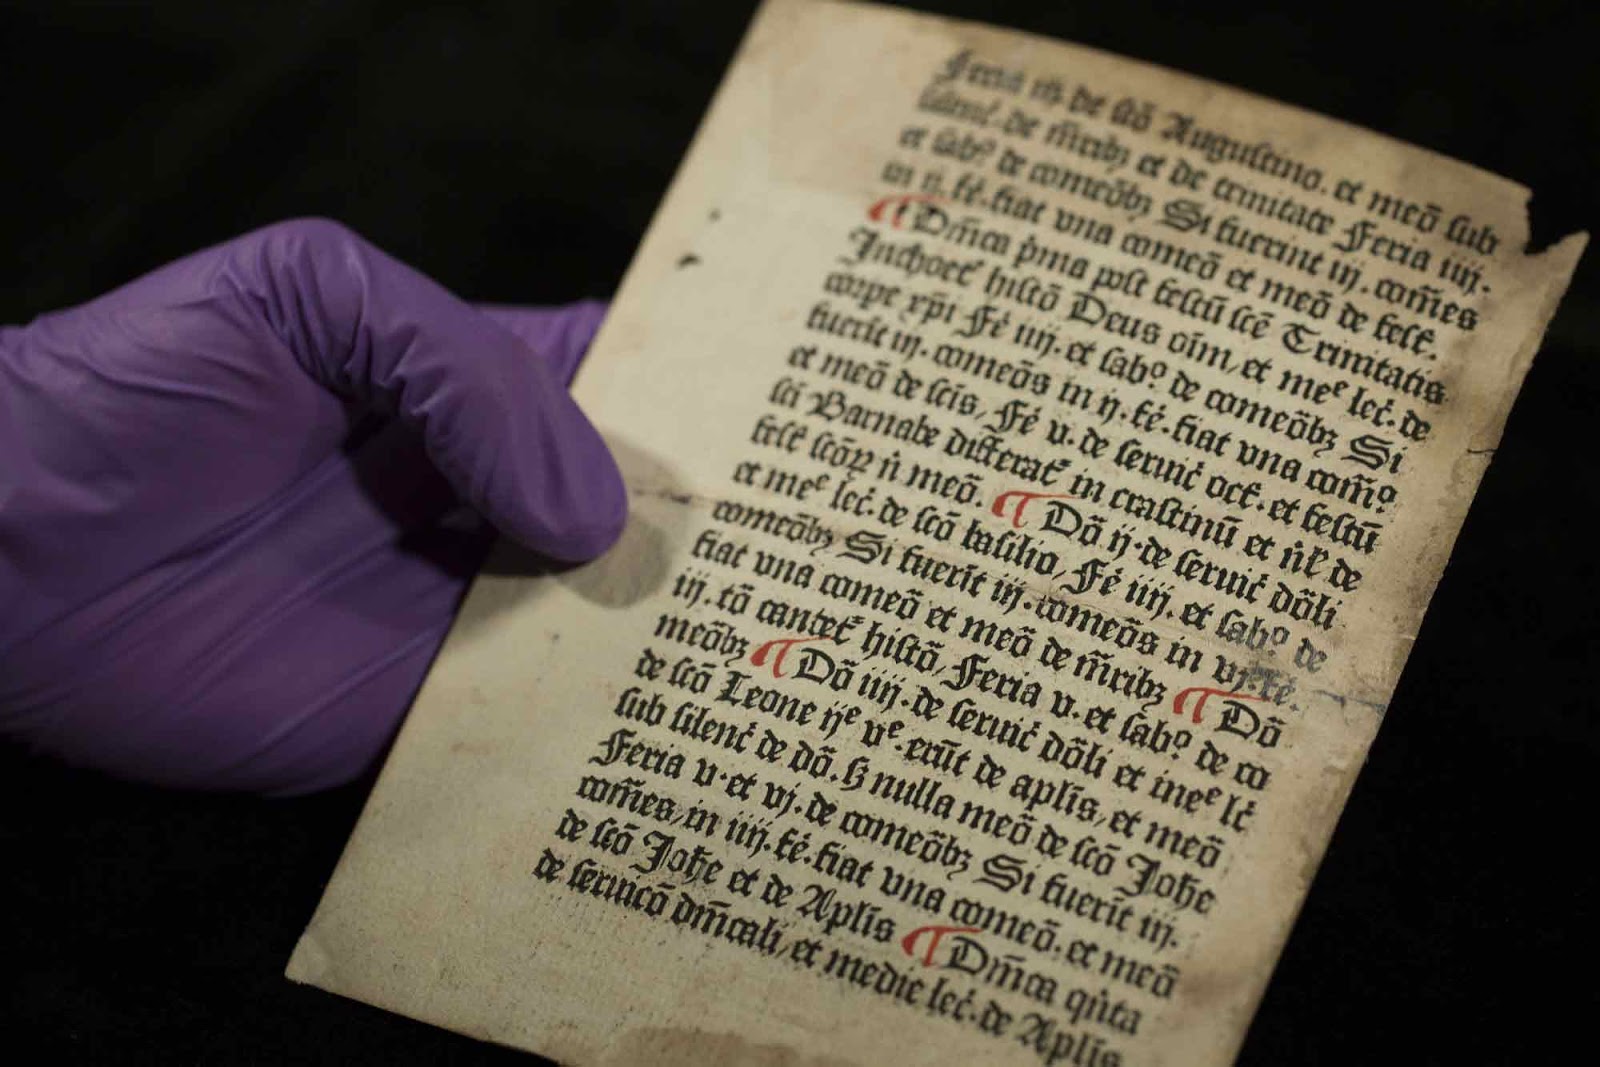 Feria iij de sco᷑ Augustino. et meō sub
silenc̄. de m̄ribꝫ et de trinitate Feria iiij.
et sabᵒ. de comeōbꝫ Si fuerint iij. com̄es
in ij. fe᷑. fiat vna comeō et meō de fest᷑.
¶ Dn̄ica p̄ma post festū sce᷑ Trinitatis
Inchoet᷑ histō Deus oīm, et meᵉ lec̄. de
corpe xp̄i Fe᷑ iiij. et sabᵒ. de comeōbꝫ Si
fuerīt iij. comeōs in ij. fe᷑. fiat vna com̄ᵒ
et meō de scīs, Fe᷑ v. de seruic̄ oct᷑. et festū
sc̄i Barnabe differat᷑ in crastinū et n̄l᷑ de
fest᷑ scōꝝ n̄ meō. ¶ Dō ij. de seruic̄ dōli
et meᵉ lec̄. de scō basilio, Fe᷑ iiij. et sabᵒ. de
comeōbꝫ Si fuerīt iij. comeōs in vj. fe᷑.
fiat vna comeō et meō de m̄ribꝫ ¶ Dō
iij. tō cantet᷑ histō, Feria v. et sabᵒ. de co
meōbꝫ ¶ Dō iiij. de seruic̄ dōli et meᵉ lc̄
de scō Leone ijᵉ vᵉ. erūt de aplīs, et meō
sub silenc̄ de dō. sꝫ nulla meō de scō Joħe
Feria v. et vj. de comeōbꝫ Si fuerīt iij.
com̄es, in iiij. fe᷑. fiat vna comeō. et meō
de scō Joħe et de Aplīs ¶ Dn̄ica qn̄ta
de seruicō dn̄icali, et medie lec̄. de Aplīs